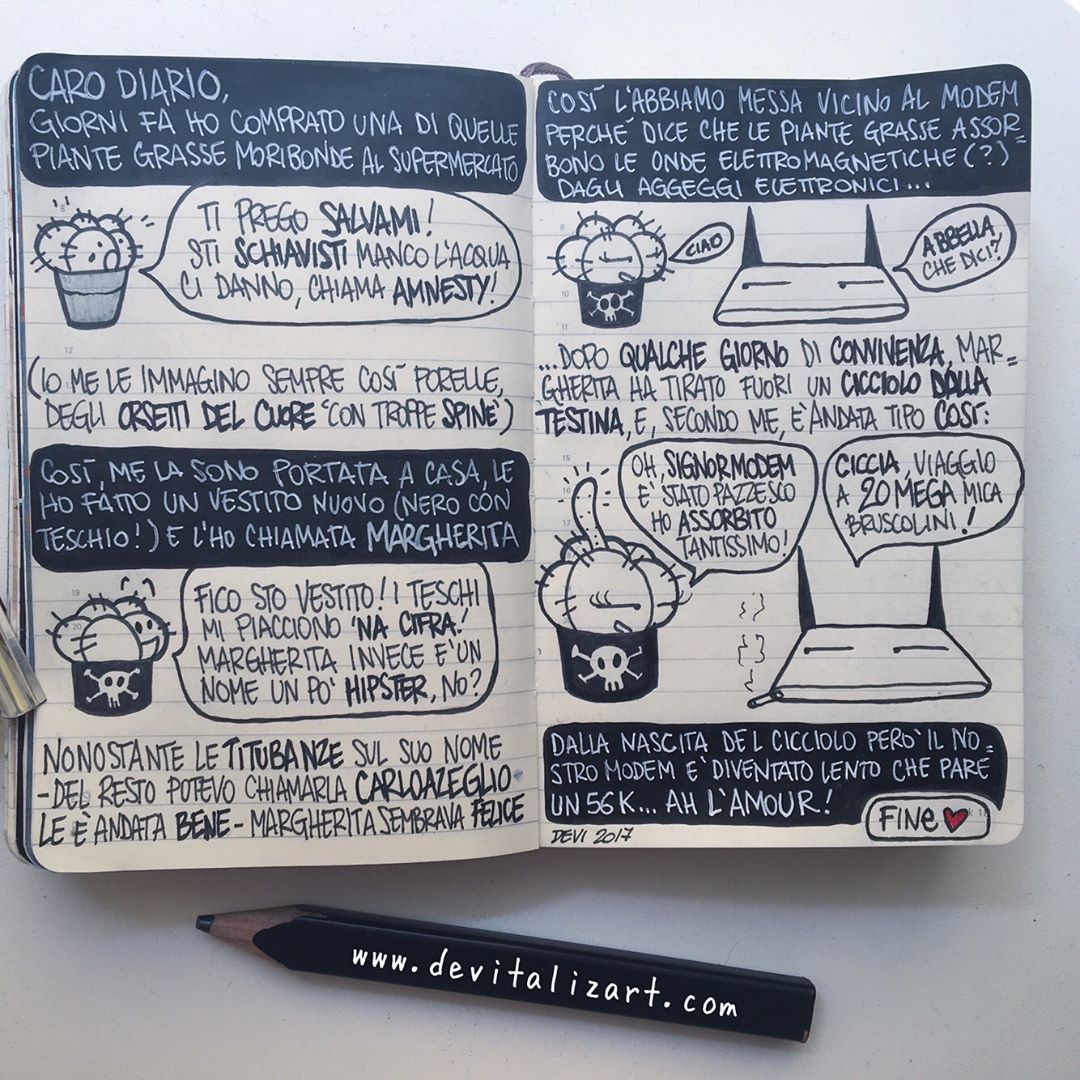 CARO DIARIO,
GIORNI FA HO COMPRATO UNA DI QUELLE
PIANTE GRASSE MORIBONDE AL SUPERMERCATO
TI PREGO SALVAMI!
STI SCHIAVISTI MANCO L'ACQUA
CI DANNO, CHIAMA AMNESTY!
(IO ME LE IMMAGINO SEMPRE COSÌ PORELLE,
DEGLI ORSETTI DEL CUORE "CON TROPPE SPINE")
COSÌ, ME LA SONO PORTATA A CASA, LE
HO FATTO UN VESTITO NUOVO (NERO CON
TESCHIO!) E L'HO CHIAMATA MARGHERITA
FICO STO VESTITO! I TESCHI
MI PIACCIONO 'NA CIFRA!
MARGHERITA INVECE E'UN
NOME UN PO' HIPSTER, NO?
NONOSTANTE LE TITUBANZE SUL SUO NOME
-DEL RESTO POTEVO CHIAMARLA CARLOAZEGLIO
LE È ANDATA BENE- MARGHERITA SEMBRAVA FELICE
COSÌ L'ABBIAMO MESSA VICINO AL MODEM
PERCHE' DICE CHE LE PIANTE GRASSE ASSOR=
BONO LE ONDE ELETTROMAGNETICHE (?)
DAGLI AGGEGGI ELETTRONICI...
CIAO
ABBELLA,
CHE DICI?
...DOPO QUALCHE GIORNO DI CONVIVENZA, MAR=
GHERITA HA TIRATO FUORI UN CICCIOLO DALLA
TESTINA, E, SECONDO ME, E'ANDATA TIPO COSÌ:
OH, SIGNORMODEM
E' STATO PAZZESCO
HO ASSORBITO
TANTISSIMO!
CICCIA, VIAGGIO
A 20 MEGA MICA
BRUSCOLINI!
DALLA NASCITA DEL CICCIOLO PERO' IL NO=
STRO MODEM E' DIVENTATO LENTO CHE PARE
UN 56K... AH L'AMOUR!
FINE
DEVI 2017
www.devitalizart.com